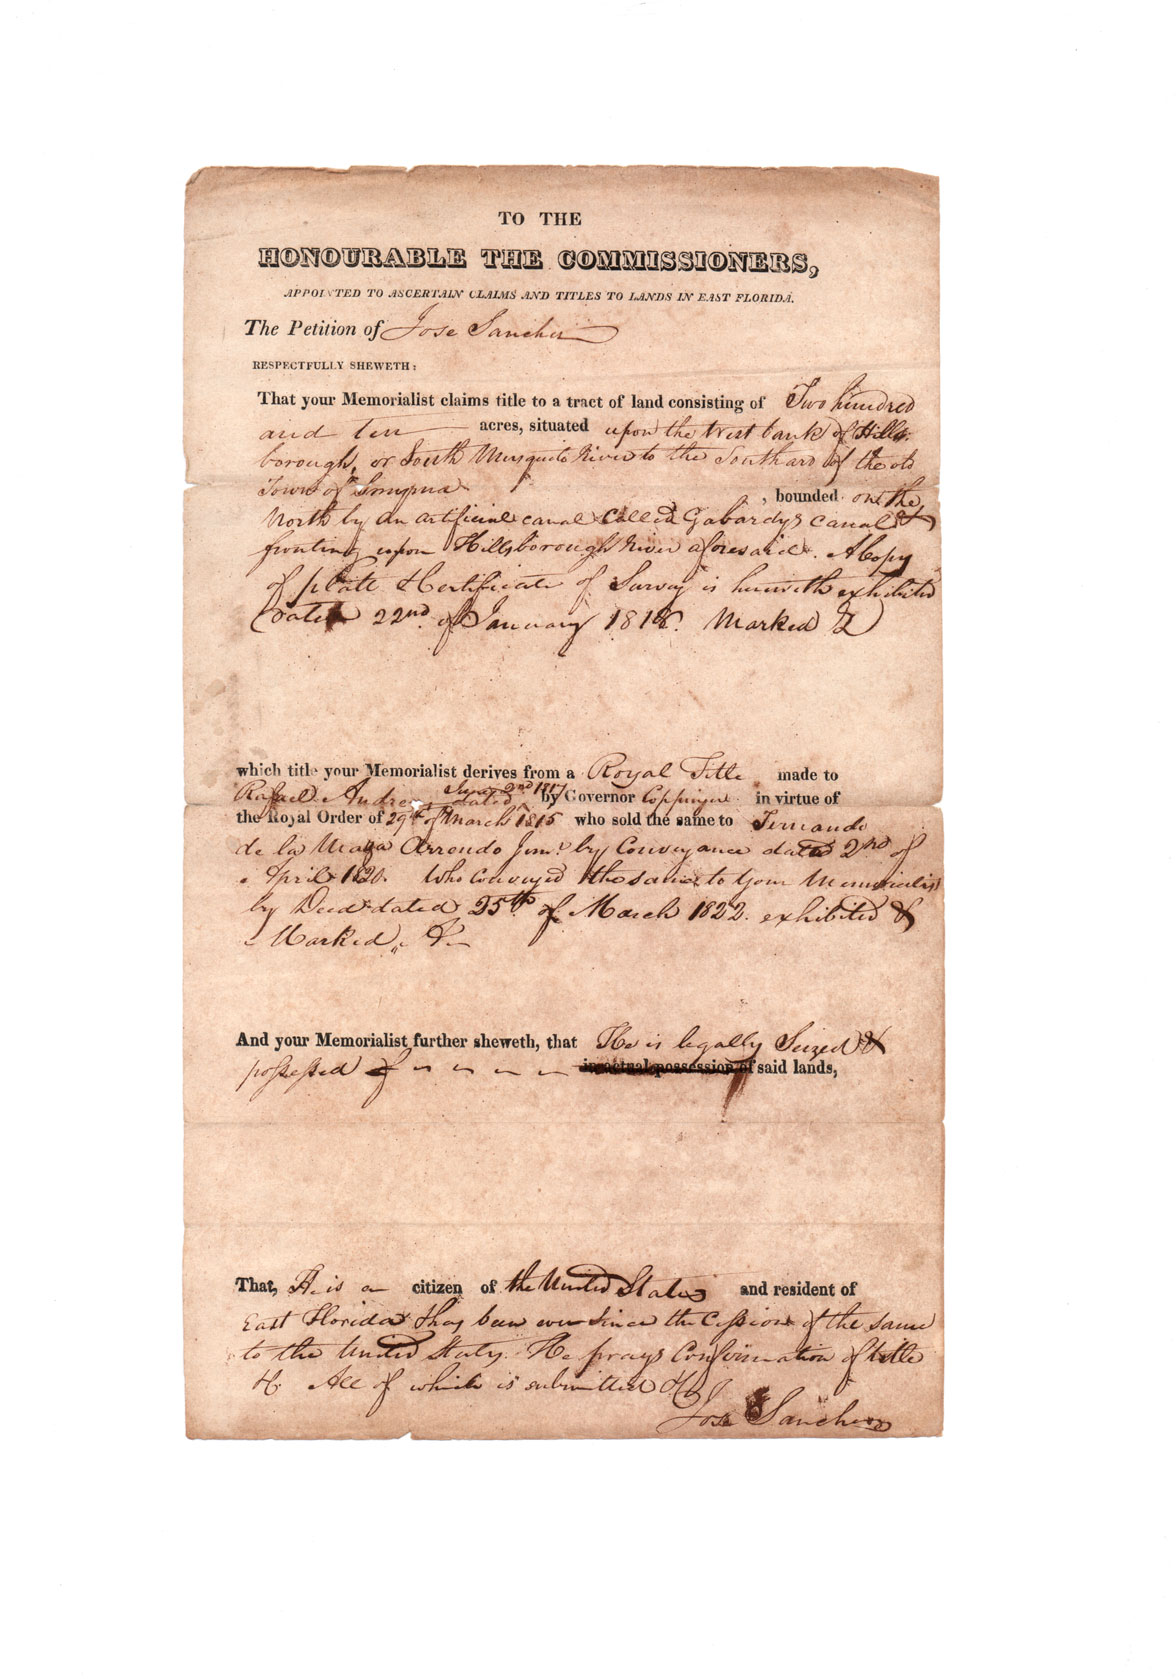 TO THE
HONOURABLE THE COMMISSIONERS,
APPOINTED TO ASCERTAIN CLAIMS AND TITLES TO LANDS IN EAST FLORIDA.
The Petition of Jose Sanchez
RESPECTFULLY SHEWETH:
That your Memorialist claims title to a tract of land consisting of Two hundred
and ten acres, situated upon the West bank of Hills-
borough, or South Musquito River to the Southard of the old
Town of Smyrna , bounded on the
North by an artificial canal called Gabardys canal &
fronting upon Hillsborough River aforesaid. A Copy
of platt & Certificate of Survey is herewith exhibited
(dated 22nd of January 1818. Marked Z)
which title your Memorialist derives from a Royal Title made to
Rafael Andres dated 2nd 1817 by Governor Coppinger in virtue of
the Royal Order of 29th of March 1815 who sold the same to Fernando
de la Maza Arrondo Junr. by Conveyance dated 2nd of
April 1820. Who conveyed the same to your Memorialist
by Deed dated 25th of March 1822. exhibited &
Marked
And your Memorialist further sheweth, that He is legally Seized &
possessed of in actual possession of said lands,
That, He is a citizen of the United States and resident of
East Florida & has been ever since the Cession of the same
to the United States. He prays Confirmation of title
&c. All of which is submitted &c
Jose Sanchez